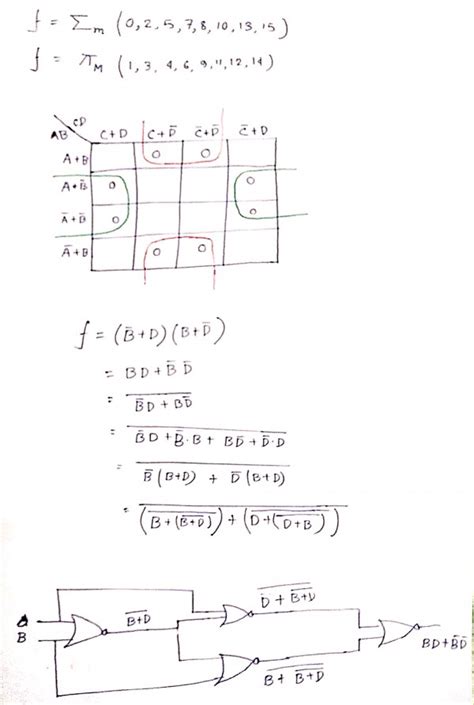 f = Σm (0,2,5,7,8,10,13,15)
f = πM (1,3,4,6,9,11,12,14)
CD
AB C+D C+D̅ C̅+D̅ C̅+D
A+B 0 0
A+B̅ 0 0
A̅+B̅ 0 0
A̅+B 0 0
f = (B̅+D)(B+D̅)
= BD + B̅ D̅
= \overline{B̅D + BD̅}
= \overline{B̅D + B̅·B + BD̅ + D̅·D}
= \overline{B̅(B+D) + D̅(B+D)}
= \overline{\overline{(B+\overline{(B+D)})} + \overline{(D+\overline{(D+B)})}}
\overline{D + \overline{B+D}}
\overline{B+D}
B
BD+B̅D̅
\overline{B + \overline{B+D}}